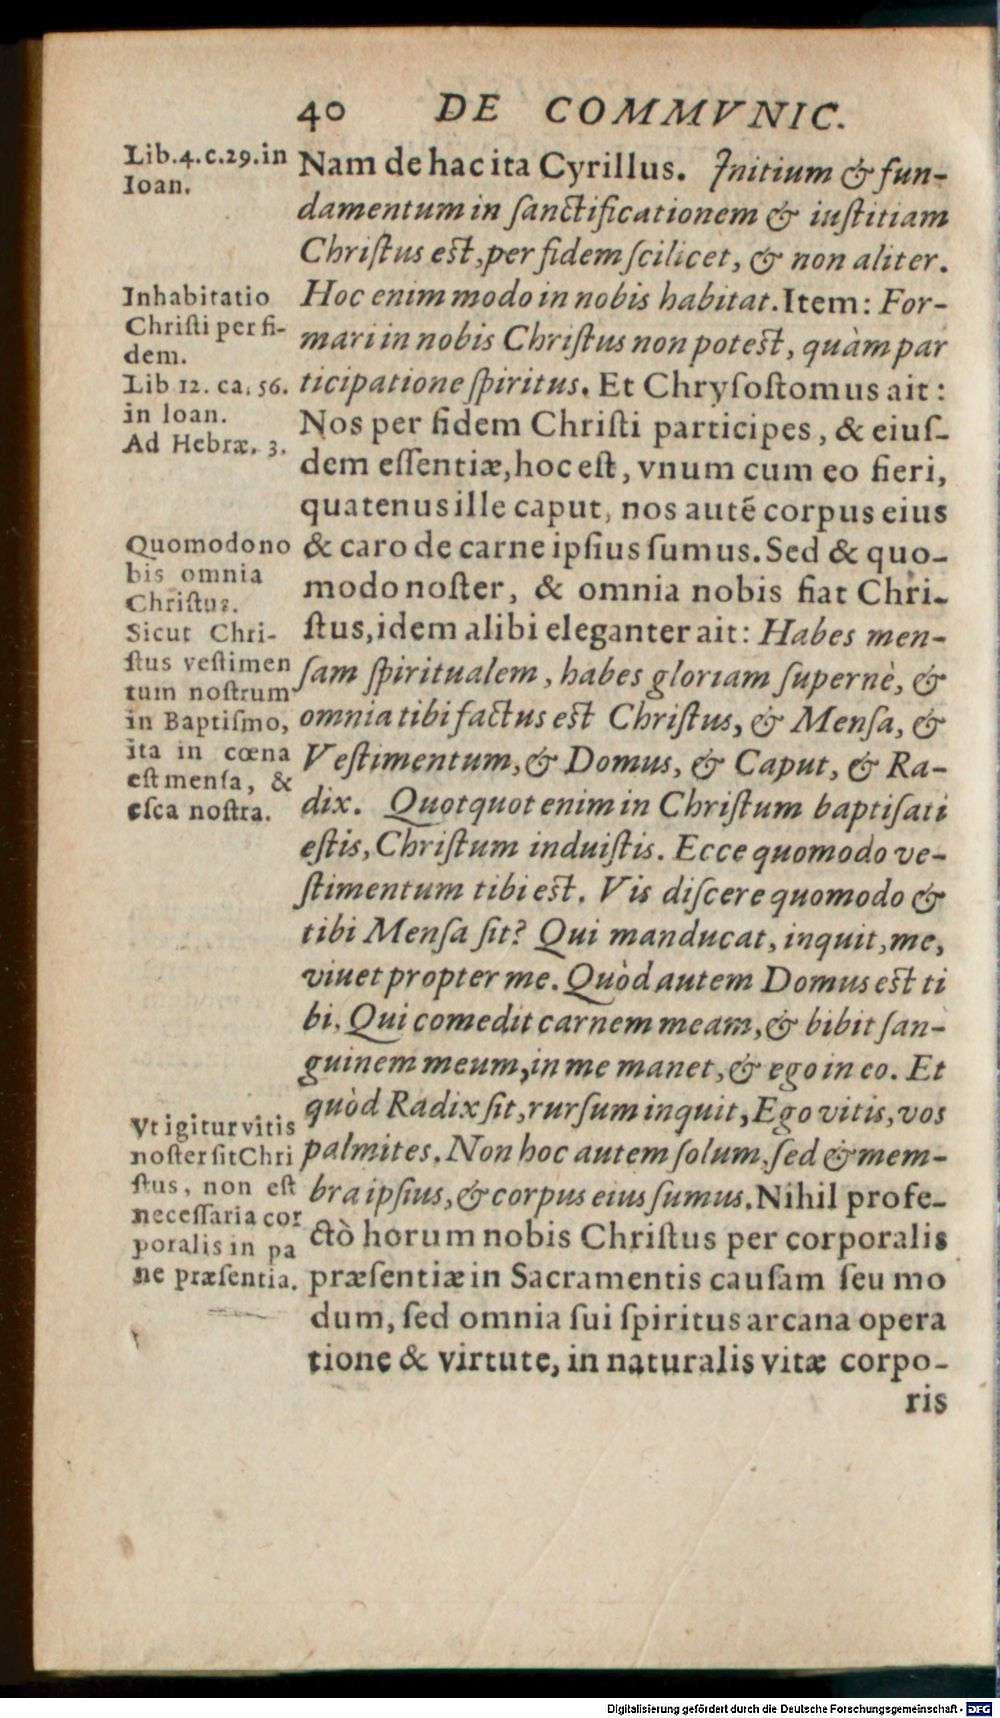 40 DE COMMVNIC.
Lib.4.c.29.in
Ioan.
Nam de hac ita Cyrillus. Initium & fun-
damentum in ſanctificationem & iuſtitiam
Chriſtus eſt, per fidem ſcilicet, & non aliter.
Inhabitatio
Chriſti per fi-
dem.
Lib 12. ca. 56.
in Ioan.
Ad Hebræ. 3.
Hoc enim modo in nobis habitat. Item: For-
mari in nobis Chriſtus non poteſt, quàm par
ticipatione ſpiritus. Et Chryſoſtomus ait:
Nos per fidem Chriſti participes, & eiuſ-
dem eſſentiæ, hoc eſt, vnum cum eo fieri,
quatenus ille caput, nos autē corpus eius
Quomodo no
bis omnia
Chriſtus.
Sicut Chri-
ſtus veſtimen
tum noſtrum
in Baptiſmo,
ita in cœna
eſt menſa, &
eſca noſtra.
& caro de carne ipſius ſumus. Sed & quo-
modo noſter, & omnia nobis fiat Chri-
ſtus, idem alibi eleganter ait: Habes men-
ſam ſpiritualem, habes gloriam ſupernè, &
omnia tibi factus eſt Chriſtus, & Menſa, &
Veſtimentum, & Domus, & Caput, & Ra-
dix. Quotquot enim in Chriſtum baptiſati
eſtis, Chriſtum induiſtis. Ecce quomodo ve-
ſtimentum tibi eſt. Vis diſcere quomodo &
tibi Menſa ſit? Qui manducat, inquit, me,
viuet propter me. Quòd autem Domus eſt ti
bi, Qui comedit carnem meam, & bibit ſan-
guinem meum, in me manet, & ego in eo. Et
quòd Radix ſit, rurſum inquit, Ego vitis, vos
Vt igitur vitis
noſter ſit Chri
ſtus, non eſt
neceſſaria cor
poralis in pa
ne præſentia.
palmites. Non hoc autem ſolum, ſed & mem-
bra ipſius, & corpus eius ſumus. Nihil profe-
ctò horum nobis Chriſtus per corporalis
præſentiæ in Sacramentis cauſam ſeu mo
dum, ſed omnia ſui ſpiritus arcana opera
tione & virtute, in naturalis vitæ corpo-
ris
Digitalisierung gefördert durch die Deutsche Forschungsgemeinschaft - DFG